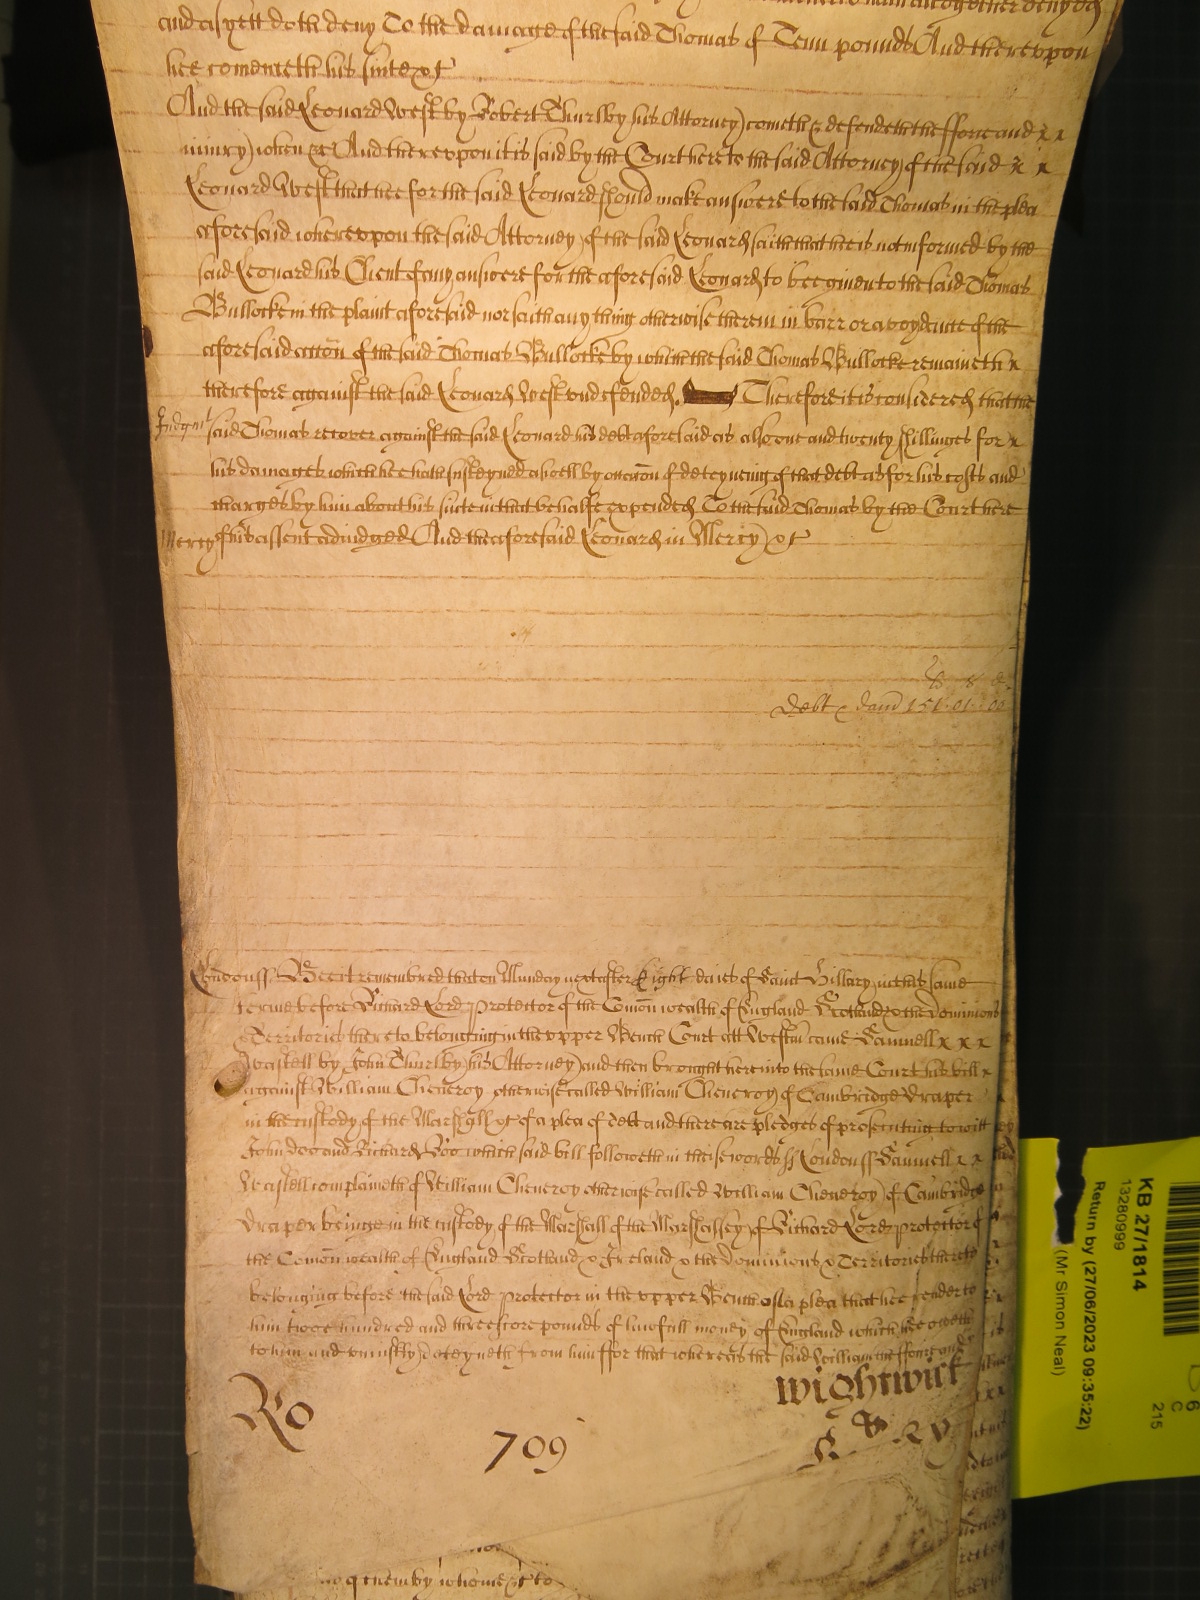 and as yett doth deny To the damage of the said Thomas of Tenn pounds And thereupon
hee comenceth his suite &c
And the said Leonard West by Robert Thursby his Attorney cometh & defendeth the fforce and x x
iniury when &c And thereupon it is said by the Court here to the said Attorney of the said x x
Leonard West that hee for the said Leonard should make answere to the said Thomas in the plea
aforesaid whereupon the said Attorney of the said Leonard saith that he is not informed by the
said Leonard his Client of any answere for the aforesaid Leonard to bee given to the said Thomas
Bullocke in the plaint aforesaid nor saith any thing otherwise therein in barr or avoydance of the
aforesaid accōn of the said Thomas Bullocke by which the said Thomas Bullocke remaineth x
therefore against the said Leonard West undefended. Therefore it is considered that the
Judgmt said Thomas recover against the said Leonard his debt aforesaid as also one and twenty shillinges for x
his damages which he hath susteyned aswell by occacōn of deteyneing of that debt as for his costs and
charges by him about his suite in that behalfe expended To the said Thomas by the Court here
Mercy of his assent adiudged And the aforesaid Leonard in Mercy &c
debt & dam 151 01 00
London ss. Bee it remembred that on Munday next after Eight daies of Saint Hillary in this same
Terme before Richard Lord Protector of the Comōn wealth of England Scotland & the Dominions
& Territories thereto belonging in the upper Bench Court att Westm came Samuell x x x
by John Thursby his Attorney and then brought here into the same Court his bill x
against William Cheneroy otherwise called William Cheneroy of Cambridge Draper
in the custody of the Marshall &c of a plea of debt and there are pledges of prosecuting to witt
John Doo and Richard Roo which said bill followeth in theise words ss London ss Samuell x x
complaineth of William Cheneroy otherwise called William Cheneroy of Cambridge
Draper beinge in the custody of the Marshall of the Marshalsey of Richard Lord Protector of
the Comōn wealth of England Scotland & Ireland & the Dominions & Territories thereto
belonging before the said Lord Protector in the upper Bench of a plea that hee render to
him twoe hundred and threescore pounds of lawfull money of England which hee oweth
to him and uniustly deteyneth from him ffor that whereas the said William the
Wightwick
Ro
709
KB 27/1814
13280999
Return by (27/06/2023 09:35:22)
(Mr Simon Neal)
6
C
215